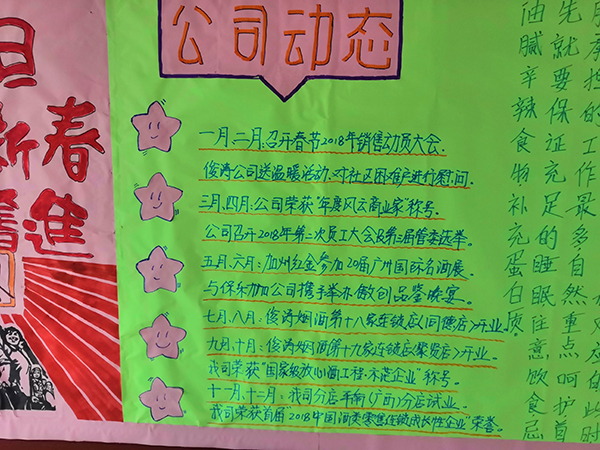 公司动态
一月、二月:召开春节2018年销售动员大会.
俊涛公司送温暖活动.对社区困难户进行慰问.
三月、四月:公司荣获"年度风云商业家"称号.
公司召开2018年第二次员工大会及第三届管委选举.
五月、六月:加州红金参加20届广州国际名酒展.
与保乐加加公司携手举办傲创品鉴晚宴.
七月、八月:俊涛烟酒第十八家连锁店(同德店)开业.
九月、十月:俊涛烟酒第十九家连锁店(聚贤店)开业.
我司荣获"国家级放心酒工程·示范企业"称号.
十一月、十二月:我司分店平南(广西)分店试业.
我司荣获首届"2018中国酒类零售连锁成长性企业"荣誉.
旦
新春
進
油腻辛辣食物补充蛋白质
先就要保证充足的睡眠
往意饮食忌
注重点呵护首
的工作最多
自然
时